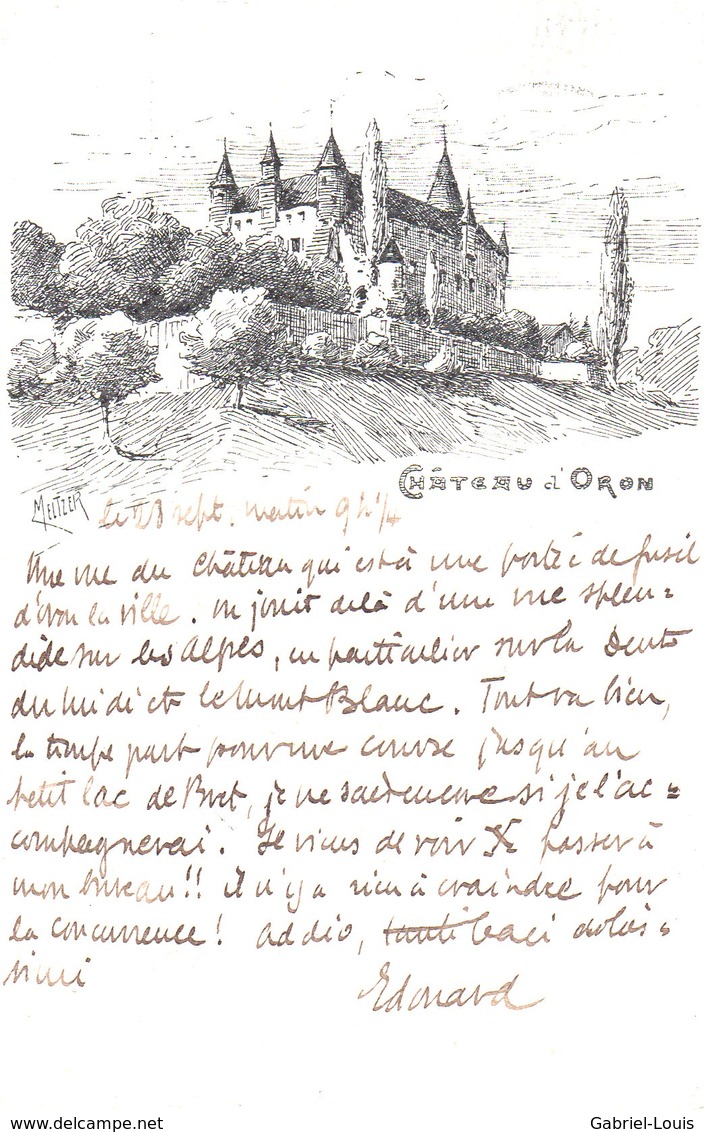 CHÂTEAU d'ORON
MELTZER
Le 28 sept. matin 9 h 1/4
Une vue du Château qui est à une portée de fusil
d'Oron la ville. On jouit de là d'une vue splen=
dide sur les Alpes, en particulier sur la Dent
du Midi et le Mont Blanc. Tout va bien,
la troupe part pour une course jusqu'au
petit lac de Bret, je ne sais encore si je l'ac=
compagnerai. Je viens de voir X passer à
mon bureau!! il n'y a rien à craindre pour
la concurrence! addio, tanti baci dolcis=
simi
Edouard
www.delcampe.net
Gabriel-Louis